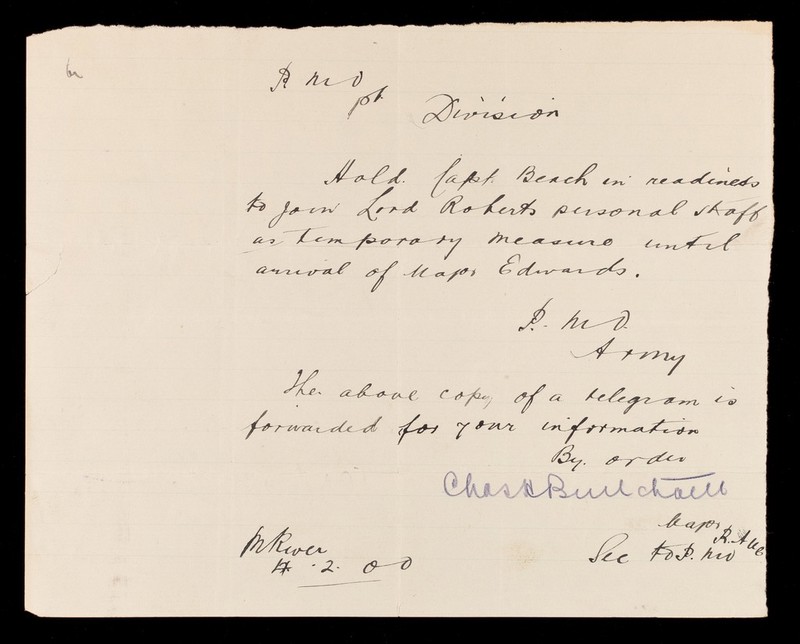 P M O
Division
Hold. Capt. Beach in readiness
to join Lord Roberts personal staff
as temporary measure until
arrival of Major Edwards.
P. M O.
Army
The above copy of a telegram is
forwarded for your information
By. order
Chas H
Major
R.A.M.C.
M River
Sec to P. M O
.2.00